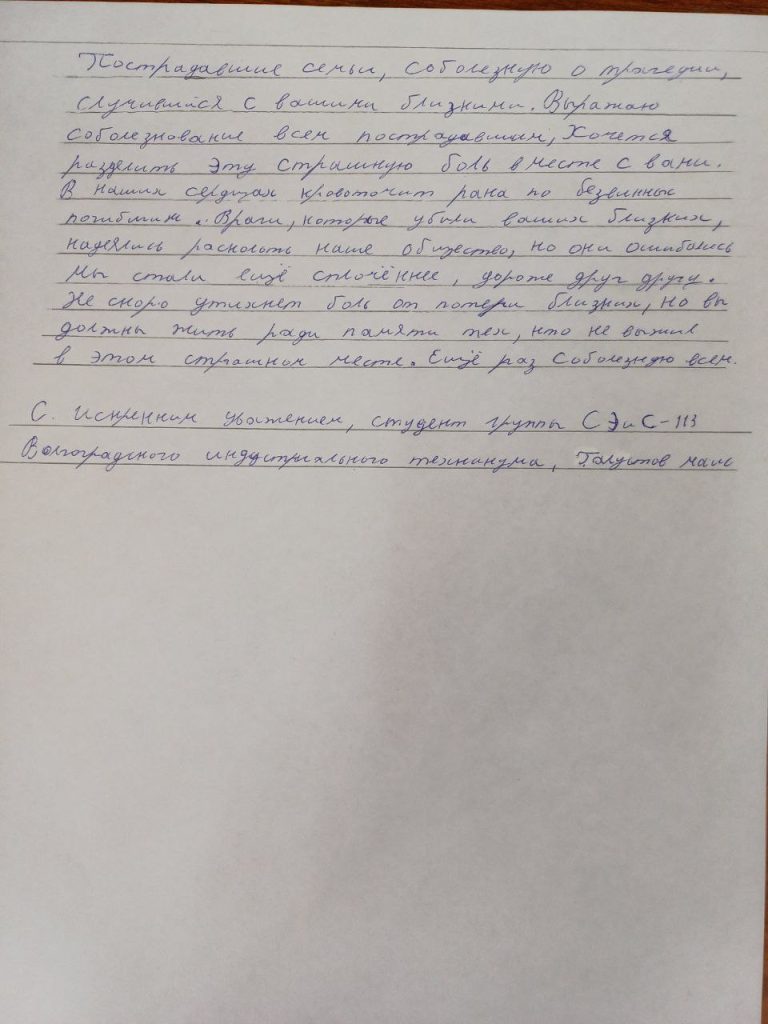 Пострадавшие семьи, соболезную о трагедии,
случившийся с вашими близкими. Выражаю
соболезнование всем пострадавшим, Хочется
разделить эту страшную боль вместе с вами.
В наших сердцах кровоточит рана по безвинных
погибшим. Враги, которые убили ваших близких,
надеялись расколоть наше общество, но они ошибались
Мы стали ещё сплочённее, дороже друг другу.
Не скоро утихнет боль от потери близких, но вы
должны жить ради памяти тех, кто не выжил
в этом страшном месте. Ещё раз Соболезную всем.
С. искренним уважением, студент группы СЭиС-113
Волгоградского индустриального техникума, Галустов